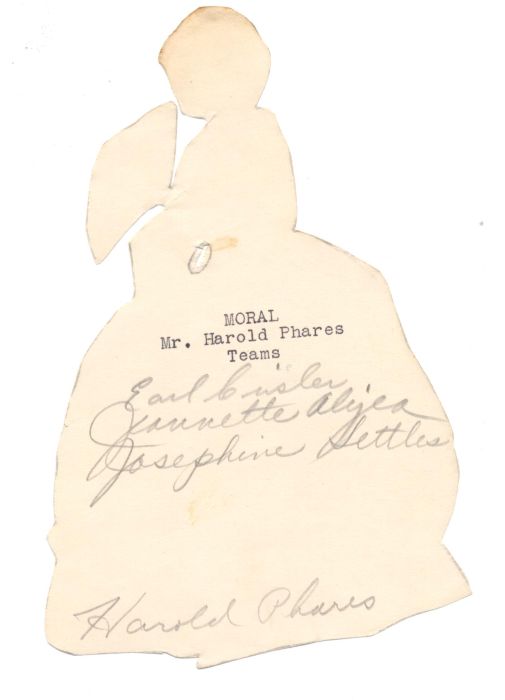 MORAL
Mr. Harold Phares
Teams
Earl Crisler
Jeannette Alyea
Josephine Settles
Harold Phares